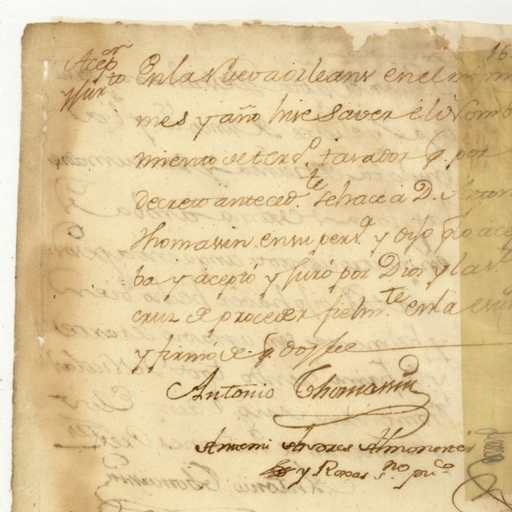 16
Acepon
y Jurto
En la Nueva orleans en el
mes y año hise saver el Nomb
miento de terº tasador q. por
decreto antecedte se hace á D. Antoni
Thomasin en su persª y dijo q lo acep
ba y aceptó y Juró por Dios y la sta
cruz de proceder fielmte en la
y firmó de q doy fee
Antonio Thomassin
Andres Almonester
y Roxas sno puco